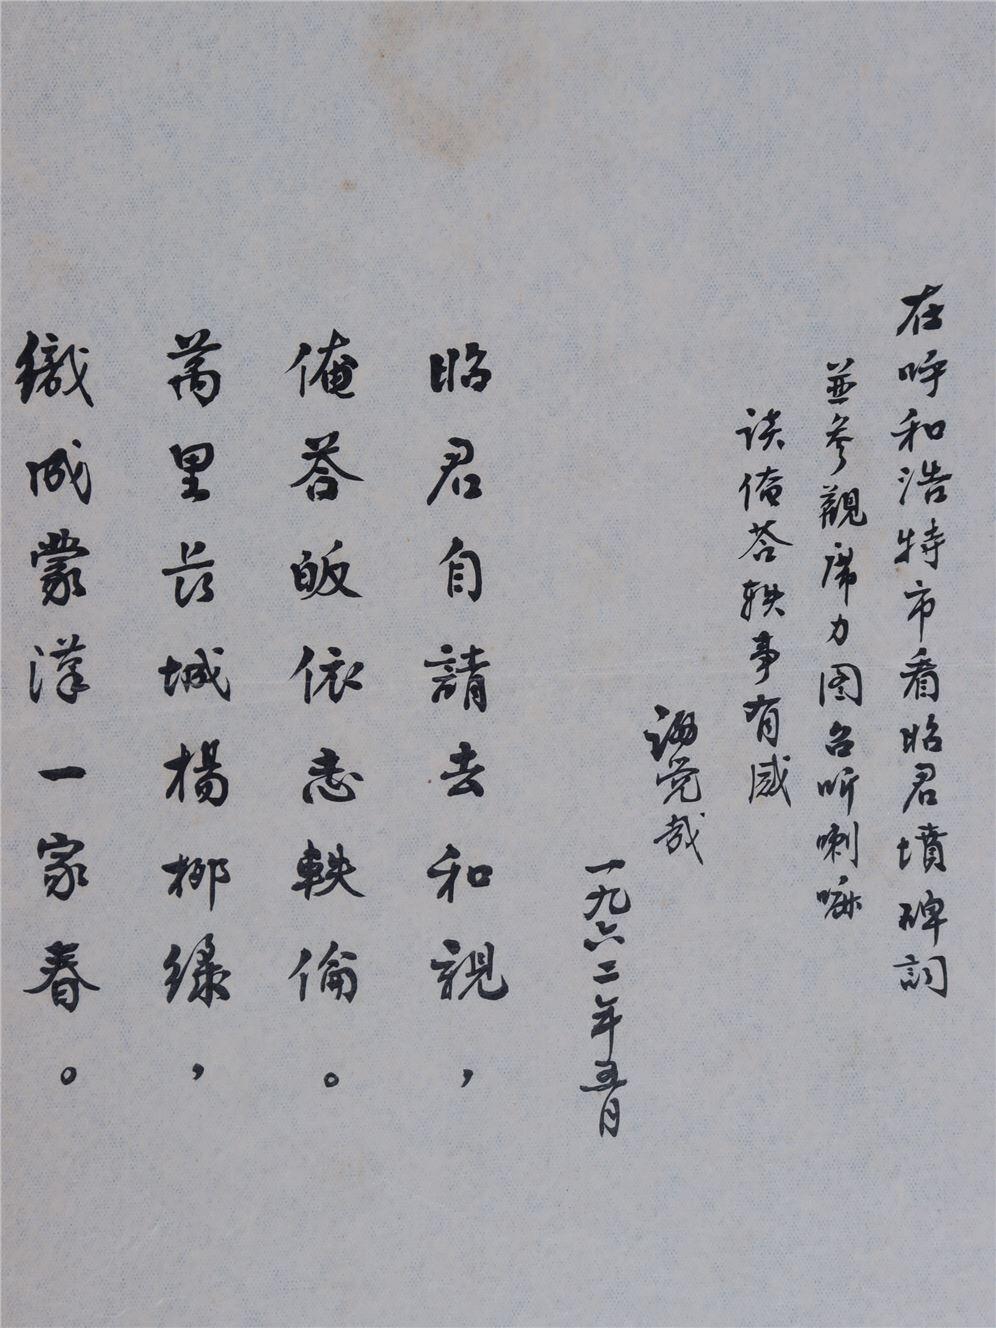 在呼和浩特市看昭君墳碑詞
並参觀席力图召听喇嘛
谈俺荅轶事有感
谢觉哉
一九六二年五月
昭君自請去和親，
俺荅皈依志軼倫。
萬里长城楊柳绿，
織成蒙漢一家春。